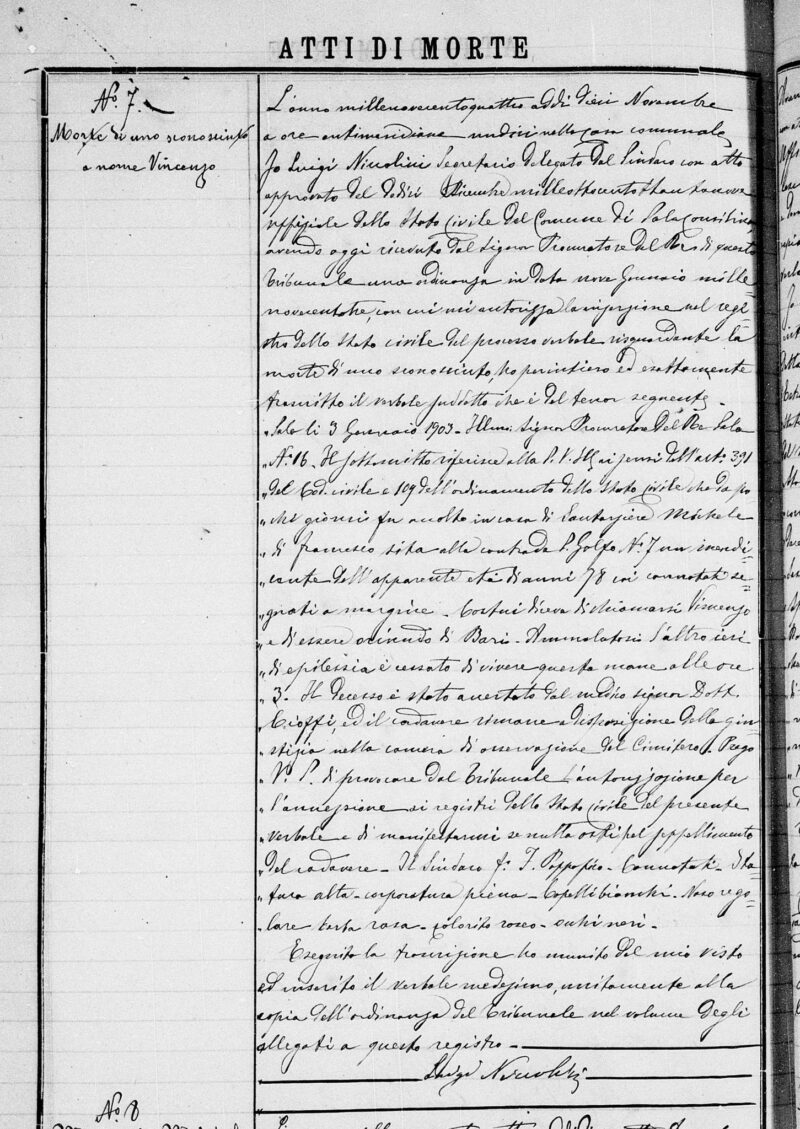 ATTI DI MORTE
No. 7.
Morte di uno sconosciuto
a nome Vincenzo
L'anno millenovecentoquattro addì dieci Novembre
a ore antimeridiane undici nella casa comunale
Io Luigi Nicolini Secretario delegato dal Sindaco con atto
approvato del dodici Dicembre milleottocento
uffiziale dello Stato Civile del Comune di Sala Consilina,
avendo oggi ricevuto dal Signor Procuratore del Re di questo
Tribunale una ordinanza in data nove Gennaio mille-
novecentotre, con cui mi autorizza la inserzione nel regi-
stro dello Stato civile del processo verbale risguardante la
morte di uno sconosciuto, ho per intiero ed esattamente
trascritto il verbale suddetto che è del tenor seguente -
"Sala li 3 Gennaio 1903 - Illmo Signor Procuratore del Re Sala
"No. 16. Il sottoscritto riferisce alla S. V. Ill ai sensi dell'art. 391
"del Cod. civile e 109 dell'ordinamento dello Stato Civile che da po-
"chi giorni fu accolto in casa di Michele
"di Francesco sita alla contrada S. Golfo No. 7 un mendi-
"cante dell'apparente età di anni 78 coi connotati se-
"gnati a margine - Costui diceva di chiamarsi Vincenzo
"e di essere oriundo di Bari - Ammalatosi l'altro ieri
"di epilessia è cessato di vivere questa mane alle ore
"3. Il decesso è stato accertato dal medico signor Dott.
"Cioffi, ed il cadavere rimane a disposizione della giu-
"stizia nella camera di osservazione del Cimitero. Prego
"V. S. di provocare dal Tribunale l'autorizzazione per
"l'annessione ai registri dello Stato Civile del presente
"verbale e di manifestarmi se nulla osti pel seppellimento
"del cadavere - Il Sindaco fo - Connotati - Sta-
"tura alta - corporatura piena - Capelli bianchi - Naso rego-
"lare barba rasa - colorito roseo - occhi neri -
Eseguito la trascrizione ho munito del mio visto
ed inserito il verbale medesimo, unitamente alla
copia dell'ordinanza del Tribunale nel volume degli
allegati a questo registro -
Luigi Nicolini
No. 8